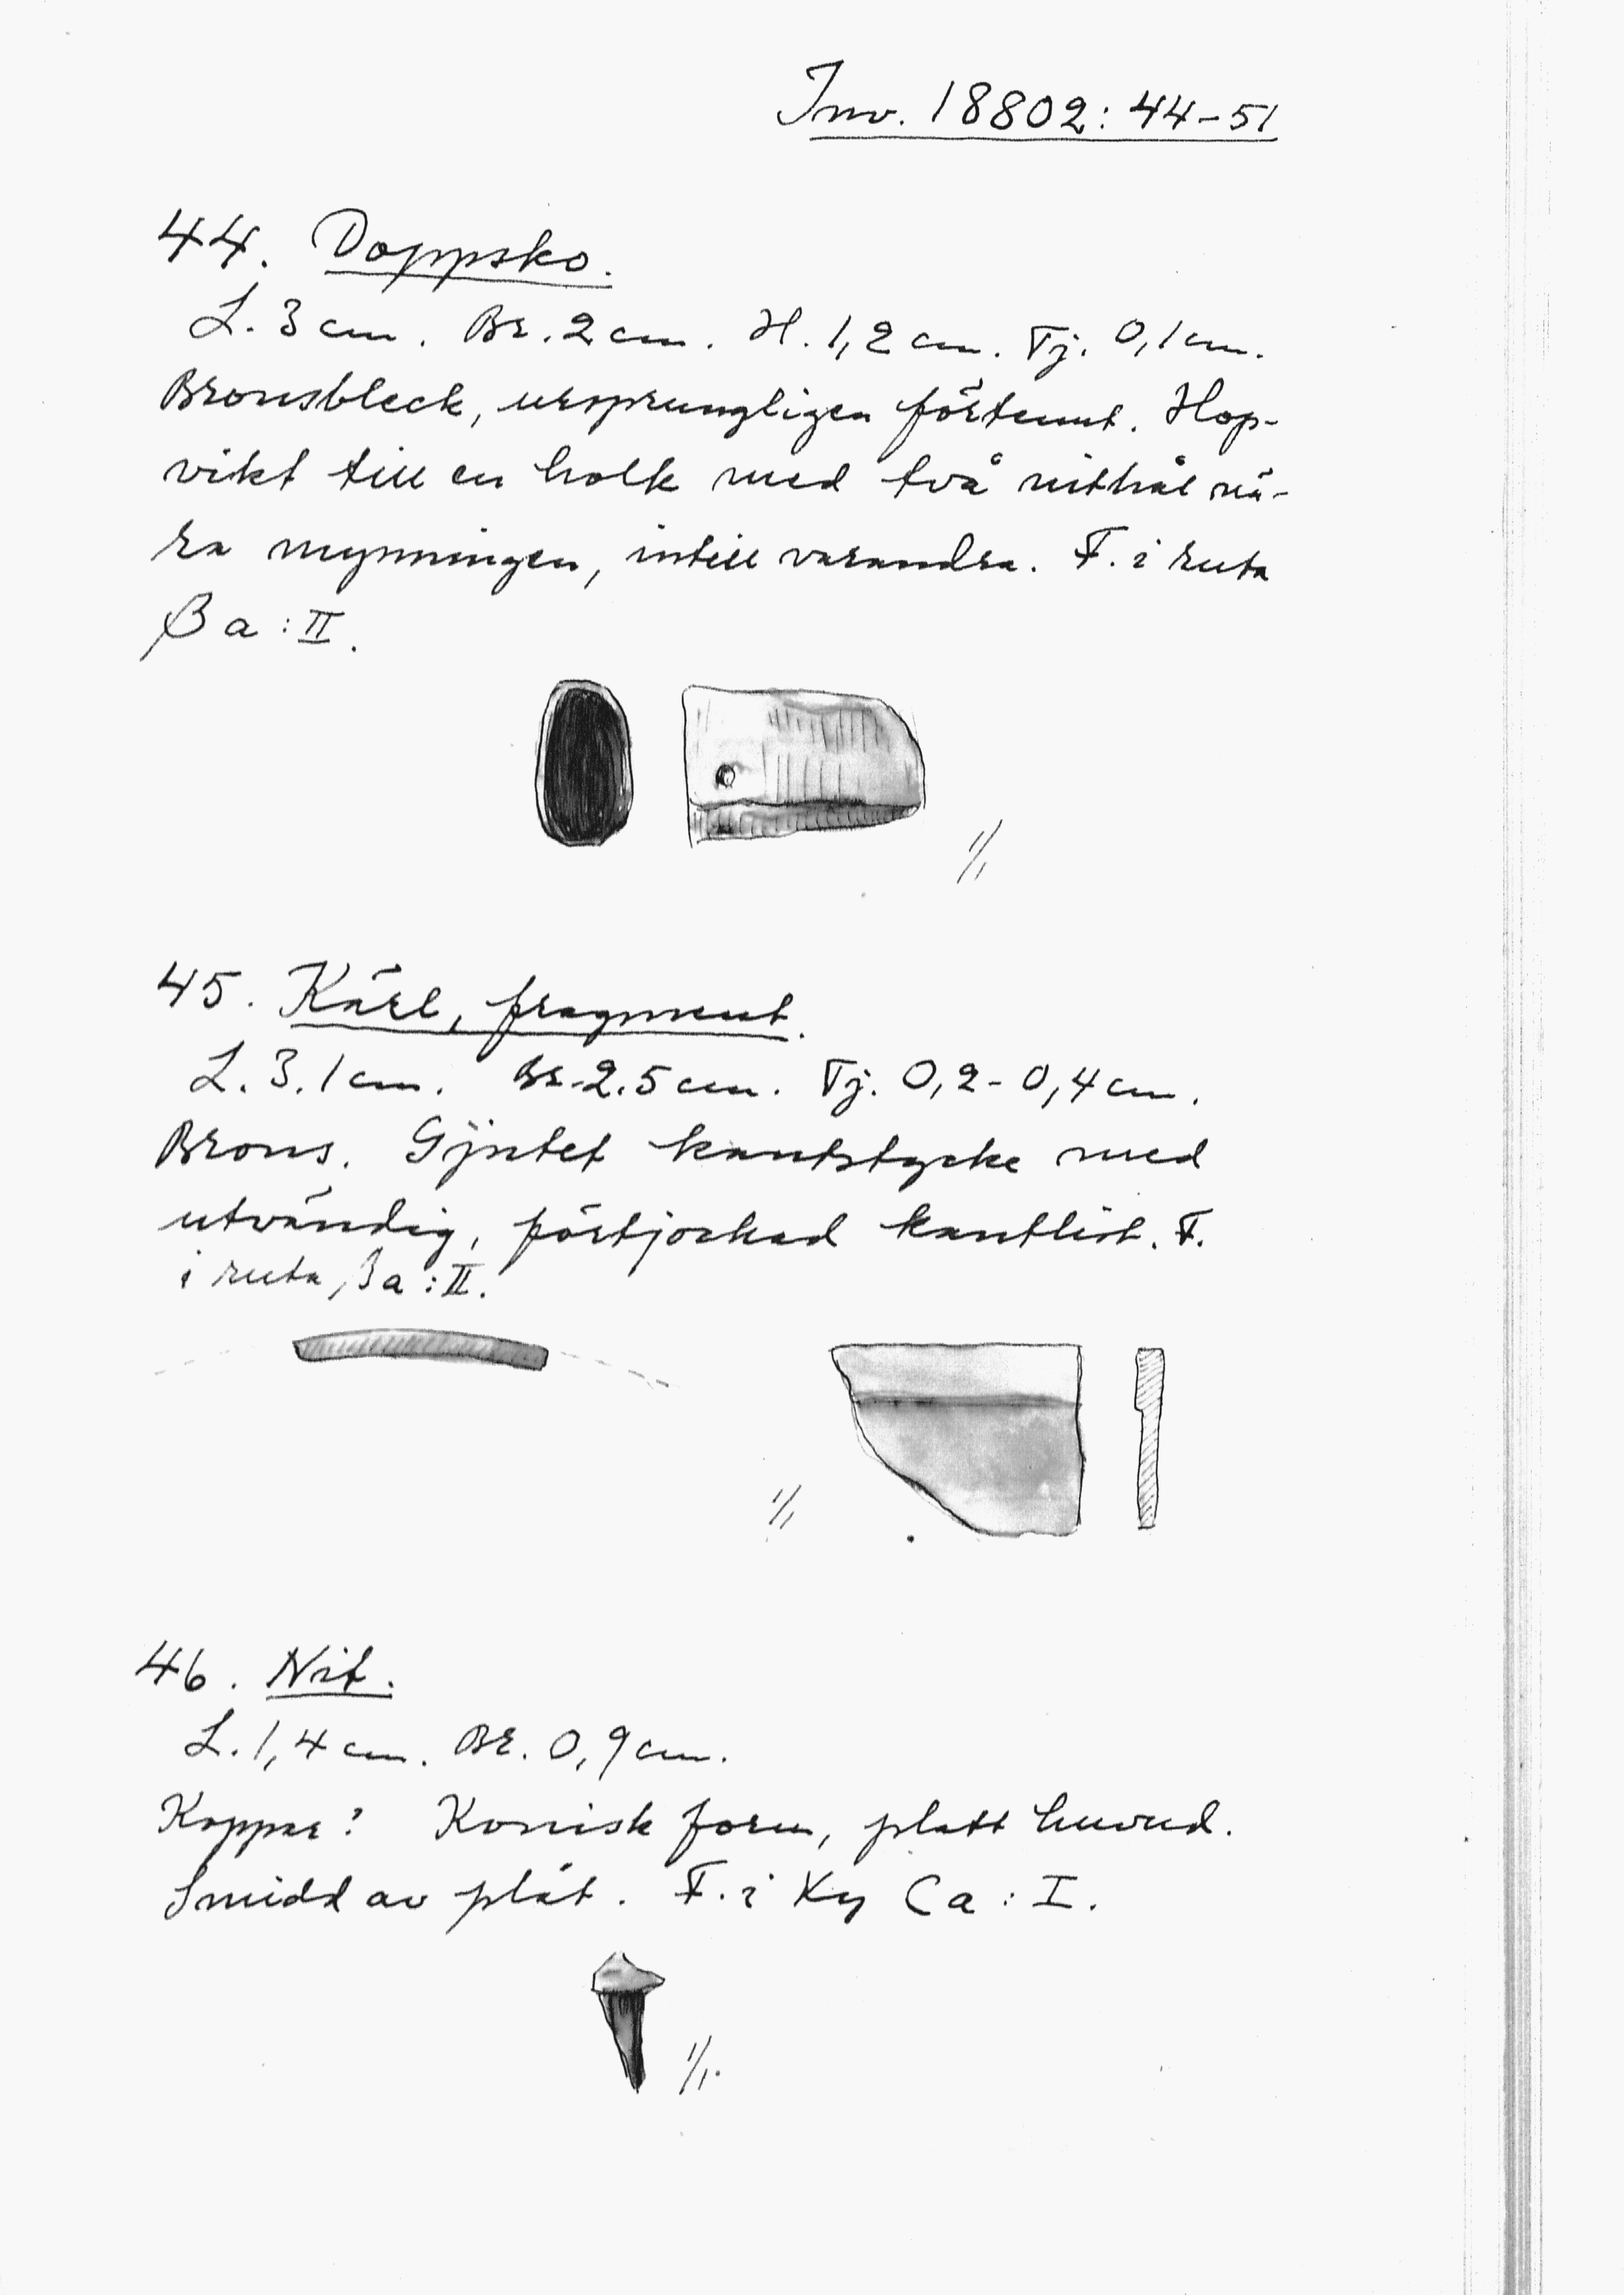 Inv. 18802: 44-51
44. Doppsko.
L. 3 cm. Br. 2 cm. H. 1,2 cm. Tj. 0,1 cm.
Bronsbleck, ursprungligen förtennt. Hop-
vikt till en holk med två nithål nä-
ra mynningen, intill varandra. F. i ruta
βa : II.
1/1
45. Kärl, fragment.
L. 3.1 cm. Br. 2.5 cm. Tj. 0,2 - 0,4 cm.
Brons. Gjutet kantstycke med
utvändig, förtjockad kantlist. F.
i ruta βa : II.
1/1
46. Nit.
L. 1,4 cm. Br. 0,9 cm.
Koppar? Konisk form, platt huvud.
Smidd av plåt. F. i Ky Ca : I.
1/1.